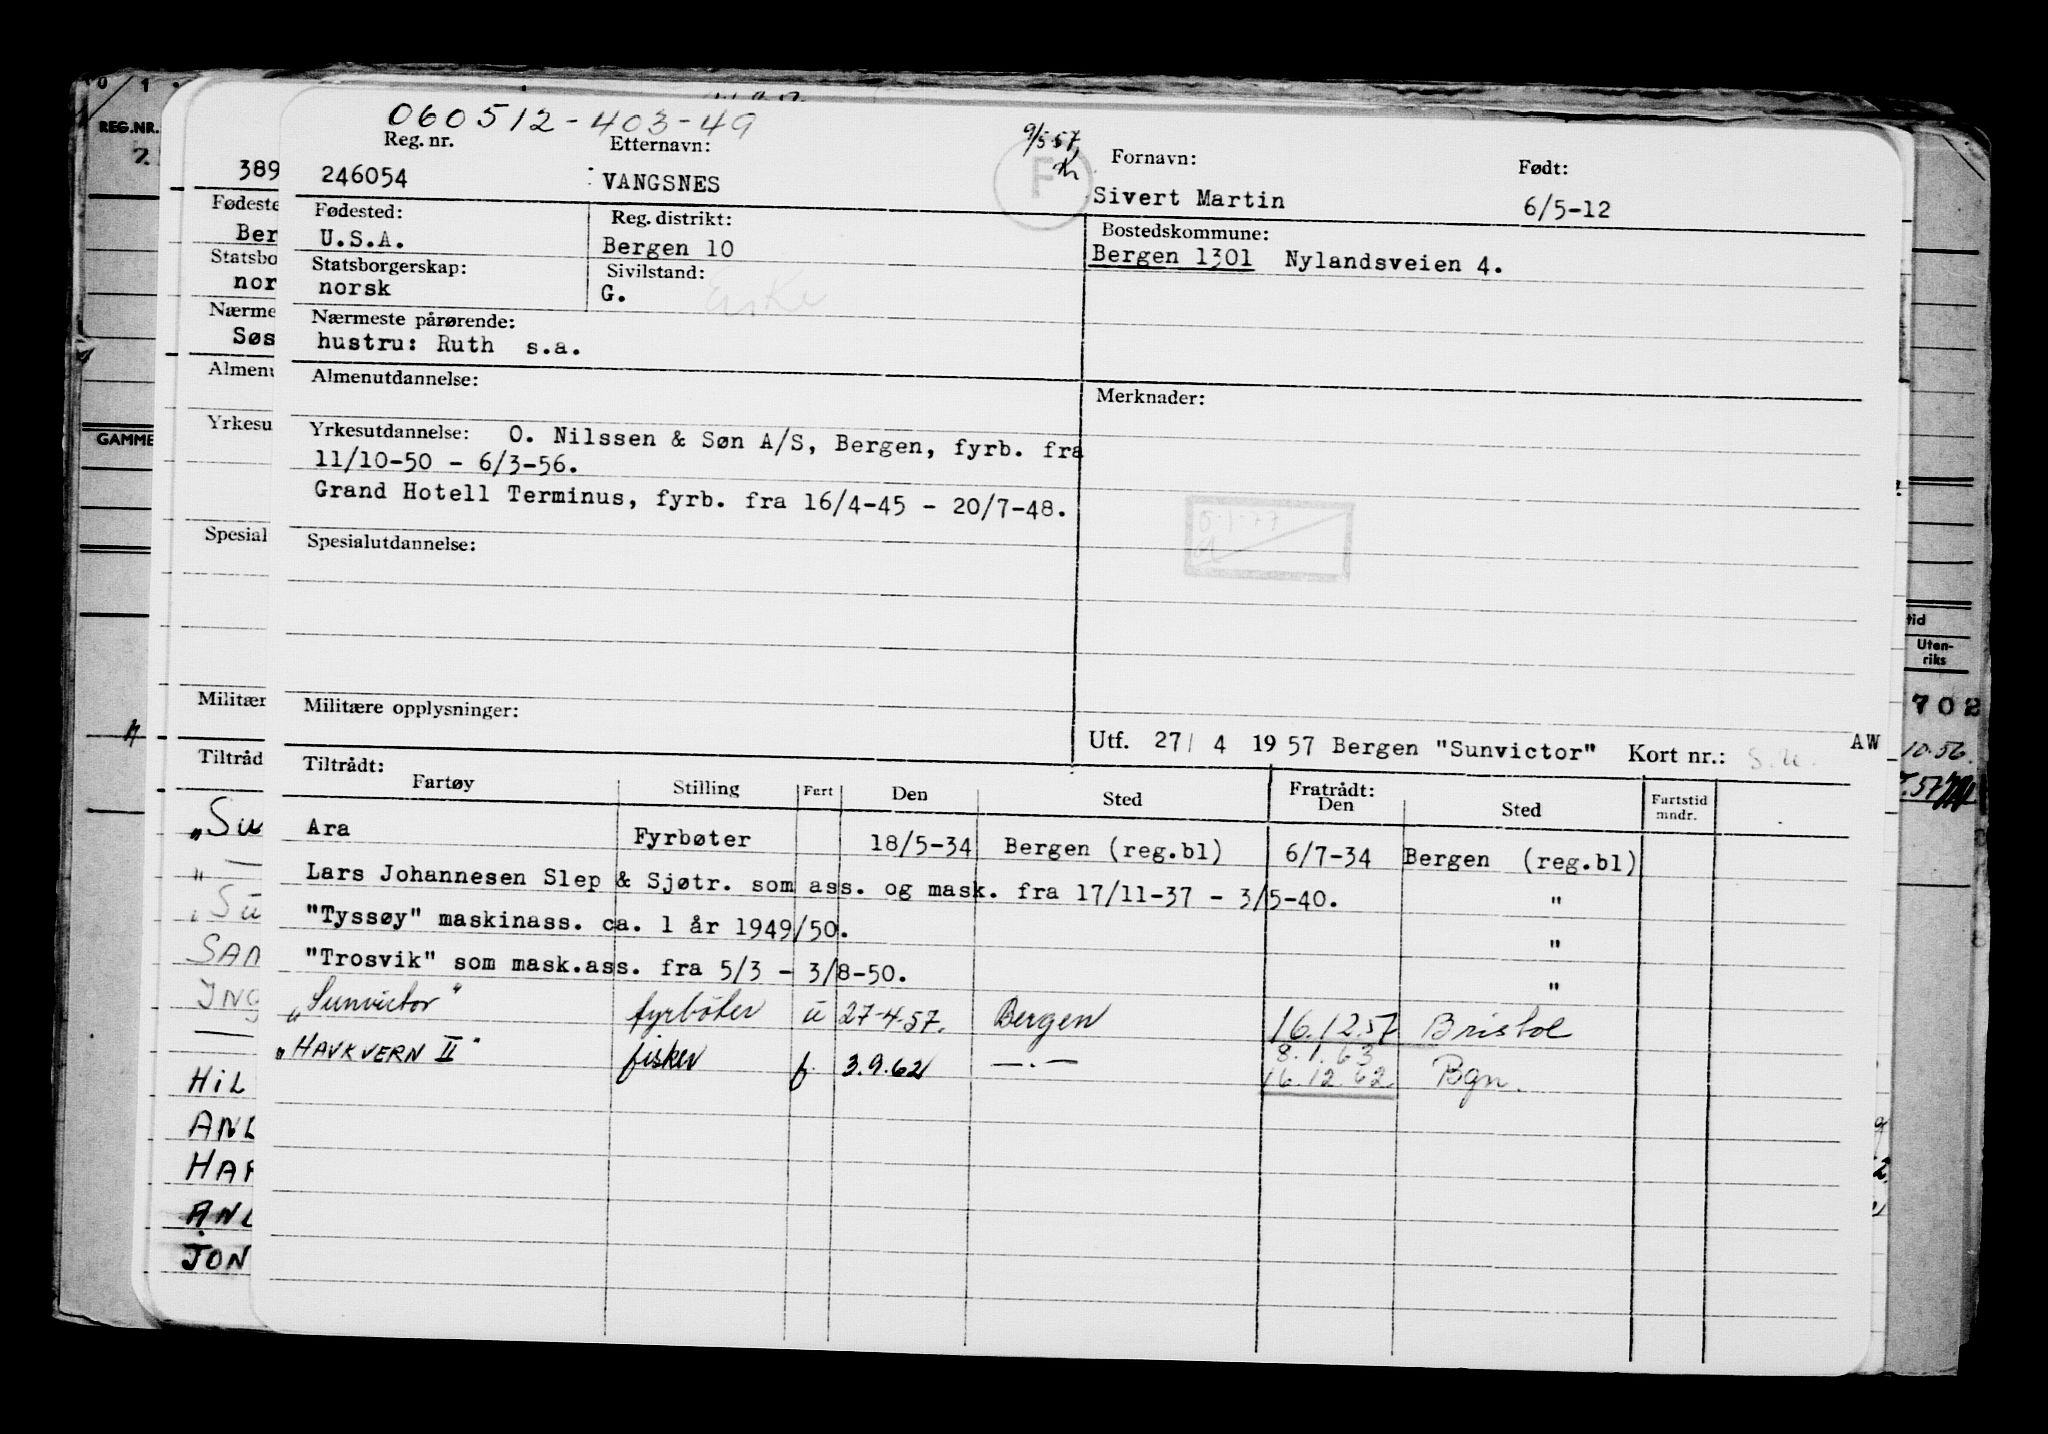 060512-403-49
9/5 57
Reg. nr. Etternavn: Fornavn: Født:
246054 VANGSNES F Sivert Martin 6/5-12
Fødested: Reg. distrikt: Bostedskommune:
U.S.A. Bergen 10 Bergen 1301 Nylandsveien 4.
Statsborgerskap: Sivilstand:
norsk G. Enke
Nærmeste pårørende:
hustru: Ruth s.a.
Almenutdannelse: Merknader:
Yrkesutdannelse: O. Nilssen & Søn A/S, Bergen, fyrb. fra
11/10-50 - 6/3-56.
Grand Hotell Terminus, fyrb. fra 16/4-45 - 20/7-48.
Spesialutdannelse:
Militære opplysninger:
Utf. 27/ 4 19 57 Bergen "Sunvictor" Kort nr.: AW
Tiltrådt: Fratrådt:
Fartøy Stilling Fart Den Sted Den Sted Fartstid mndr.
Ara Fyrbøter 18/5-34 Bergen (reg.bl) 6/7-34 Bergen (reg.bl)
Lars Johannesen Slep & Sjøtr. som ass. og mask. fra 17/11-37 - 3/5-40. "
"Tyssøy" maskinass. ca. 1 år 1949/50. "
"Trosvik" som mask.ass. fra 5/3 - 3/8-50. "
„Sunvictor" fyrbøter u 27-4-57. Bergen 16.12.57 Bristol
„HAVKVERN II" fisker f. 3.9.62 —.— 8.1.63
16.12.62 Bgn.
REG.NR.
389
Fødeste
Ber
Statsbo
nor
Nærme
Søs
Almenu
GAMME
Yrkesu
Spesial
Militær
Tiltråd
„Su
"—
„Su
SAN
ING
—
HIL
ANL
HAR
ANL
JON
tid
Uten-
riks
702
10.56